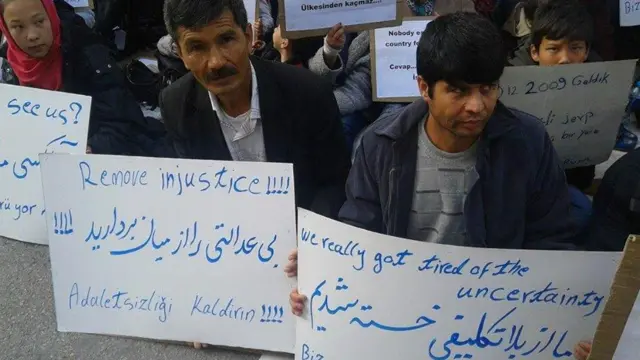 Ülkesinden kaçmaz...
Nobody
country fo
Cevap...
Biz
see us?
کسی
rüyor
Remove injustice!!!!
بی عدالتی را از میان بردارید !!!!
Adaletsizliği Kaldırın!!!!
2009 Geldik
we really got tired of the
uncertainty
ما از بلاتکلیفی خسته شدیم
Biz